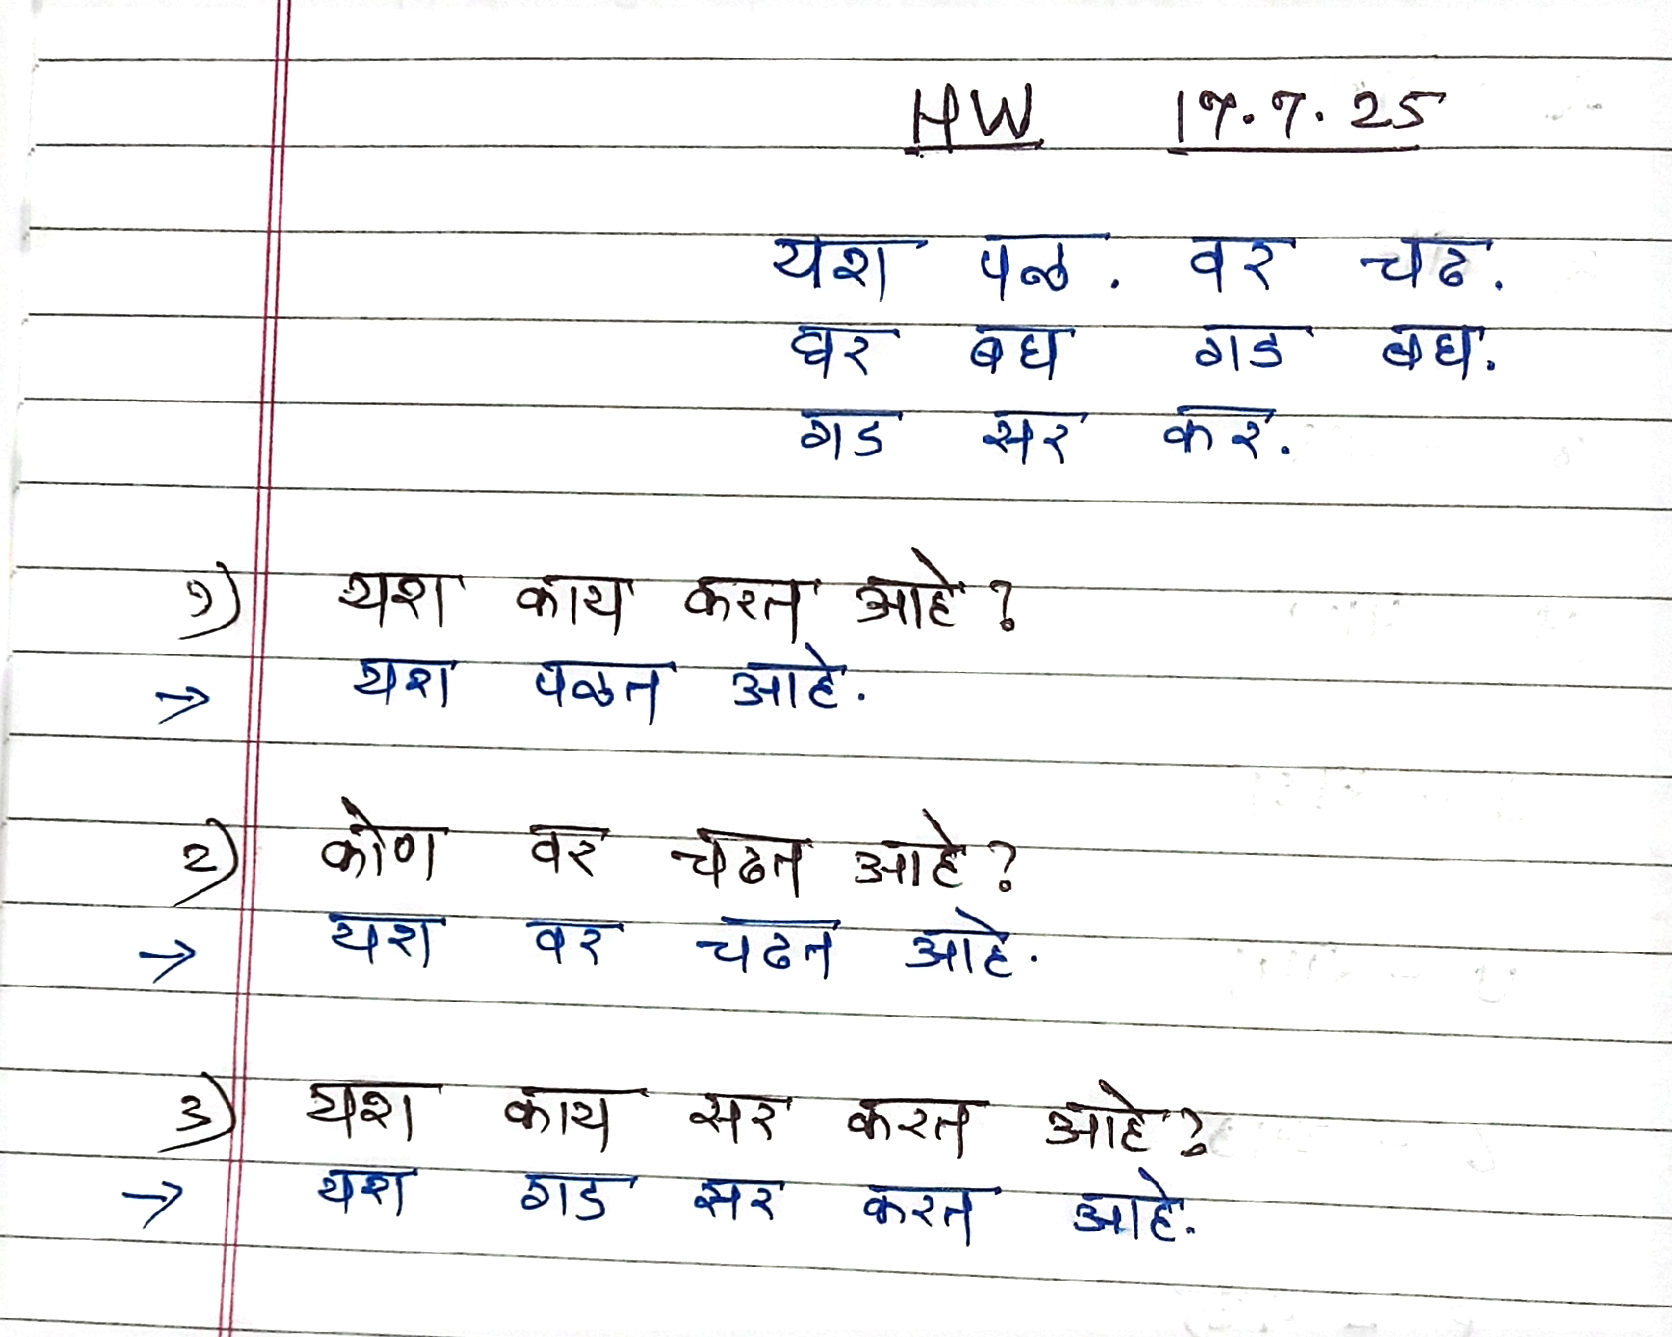 HW 17.7.25
यश पळ. वर चढ.
घर बघ गड बघ.
गड सर कर.
१) यश काय करत आहे?
→ यश पळत आहे.
२) कोण वर चढत आहे?
→ यश वर चढत आहे.
३) यश काय सर करत आहे?
→ यश गड सर करत आहे.